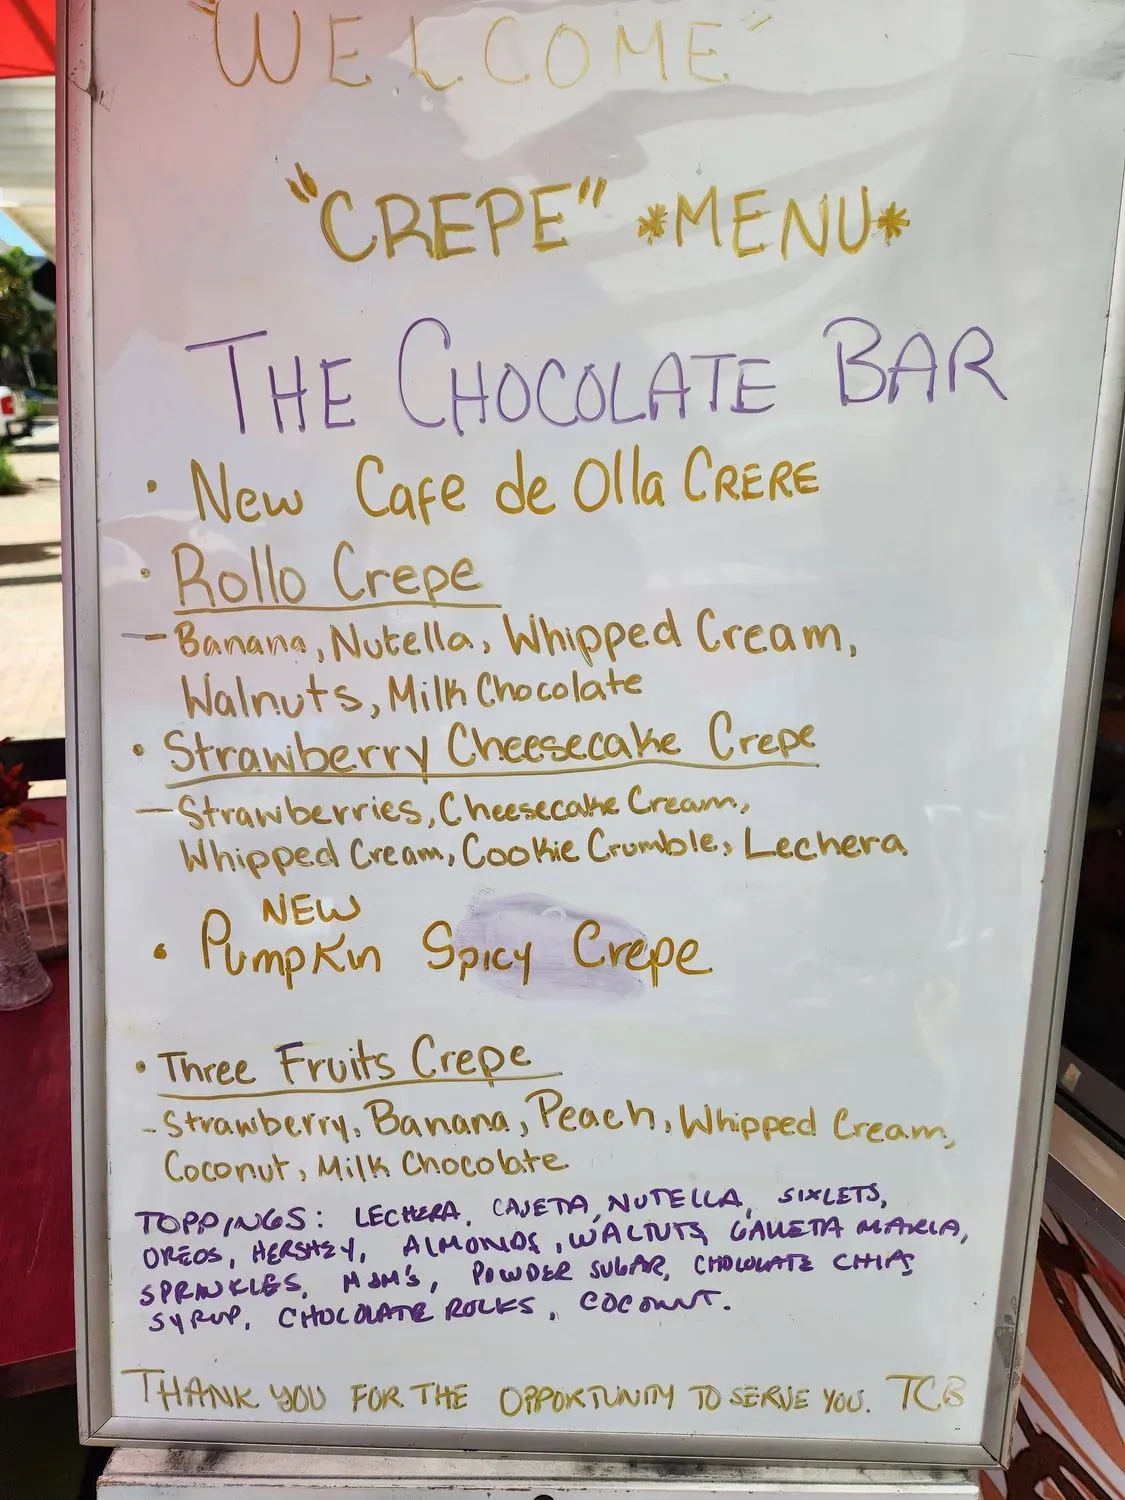 "WELCOME"
"CREPE" *MENU*
THE CHOCOLATE BAR
• New Cafe de Olla CRERE
• Rollo Crepe
- Banana, Nutella, Whipped Cream,
Walnuts, Milk Chocolate
• Strawberry Cheesecake Crepe
- Strawberries, Cheesecake Cream,
Whipped Cream, Cookie Crumble, Lechera
NEW
• Pumpkin Spicy Crepe
• Three Fruits Crepe
- Strawberry, Banana, Peach, Whipped Cream,
Coconut, Milk Chocolate
TOPPINGS: LECHERA, CAJETA, NUTELLA, SIXLETS,
OREOS, HERSHEY, ALMONDS, WALTUTS GALLETA MARIA,
SPRINKLES, M&M'S, POWDER SUGAR, CHOCOLATE CHIPS
SYRUP, CHOCOLATE ROCKS, COCONUT.
THANK YOU FOR THE OPPORTUNITY TO SERVE YOU. TCB